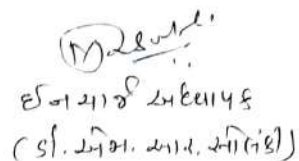 ઈનચાર્જ અધ્યાપક
(ડૉ. એમ. આર. સોલંકી)